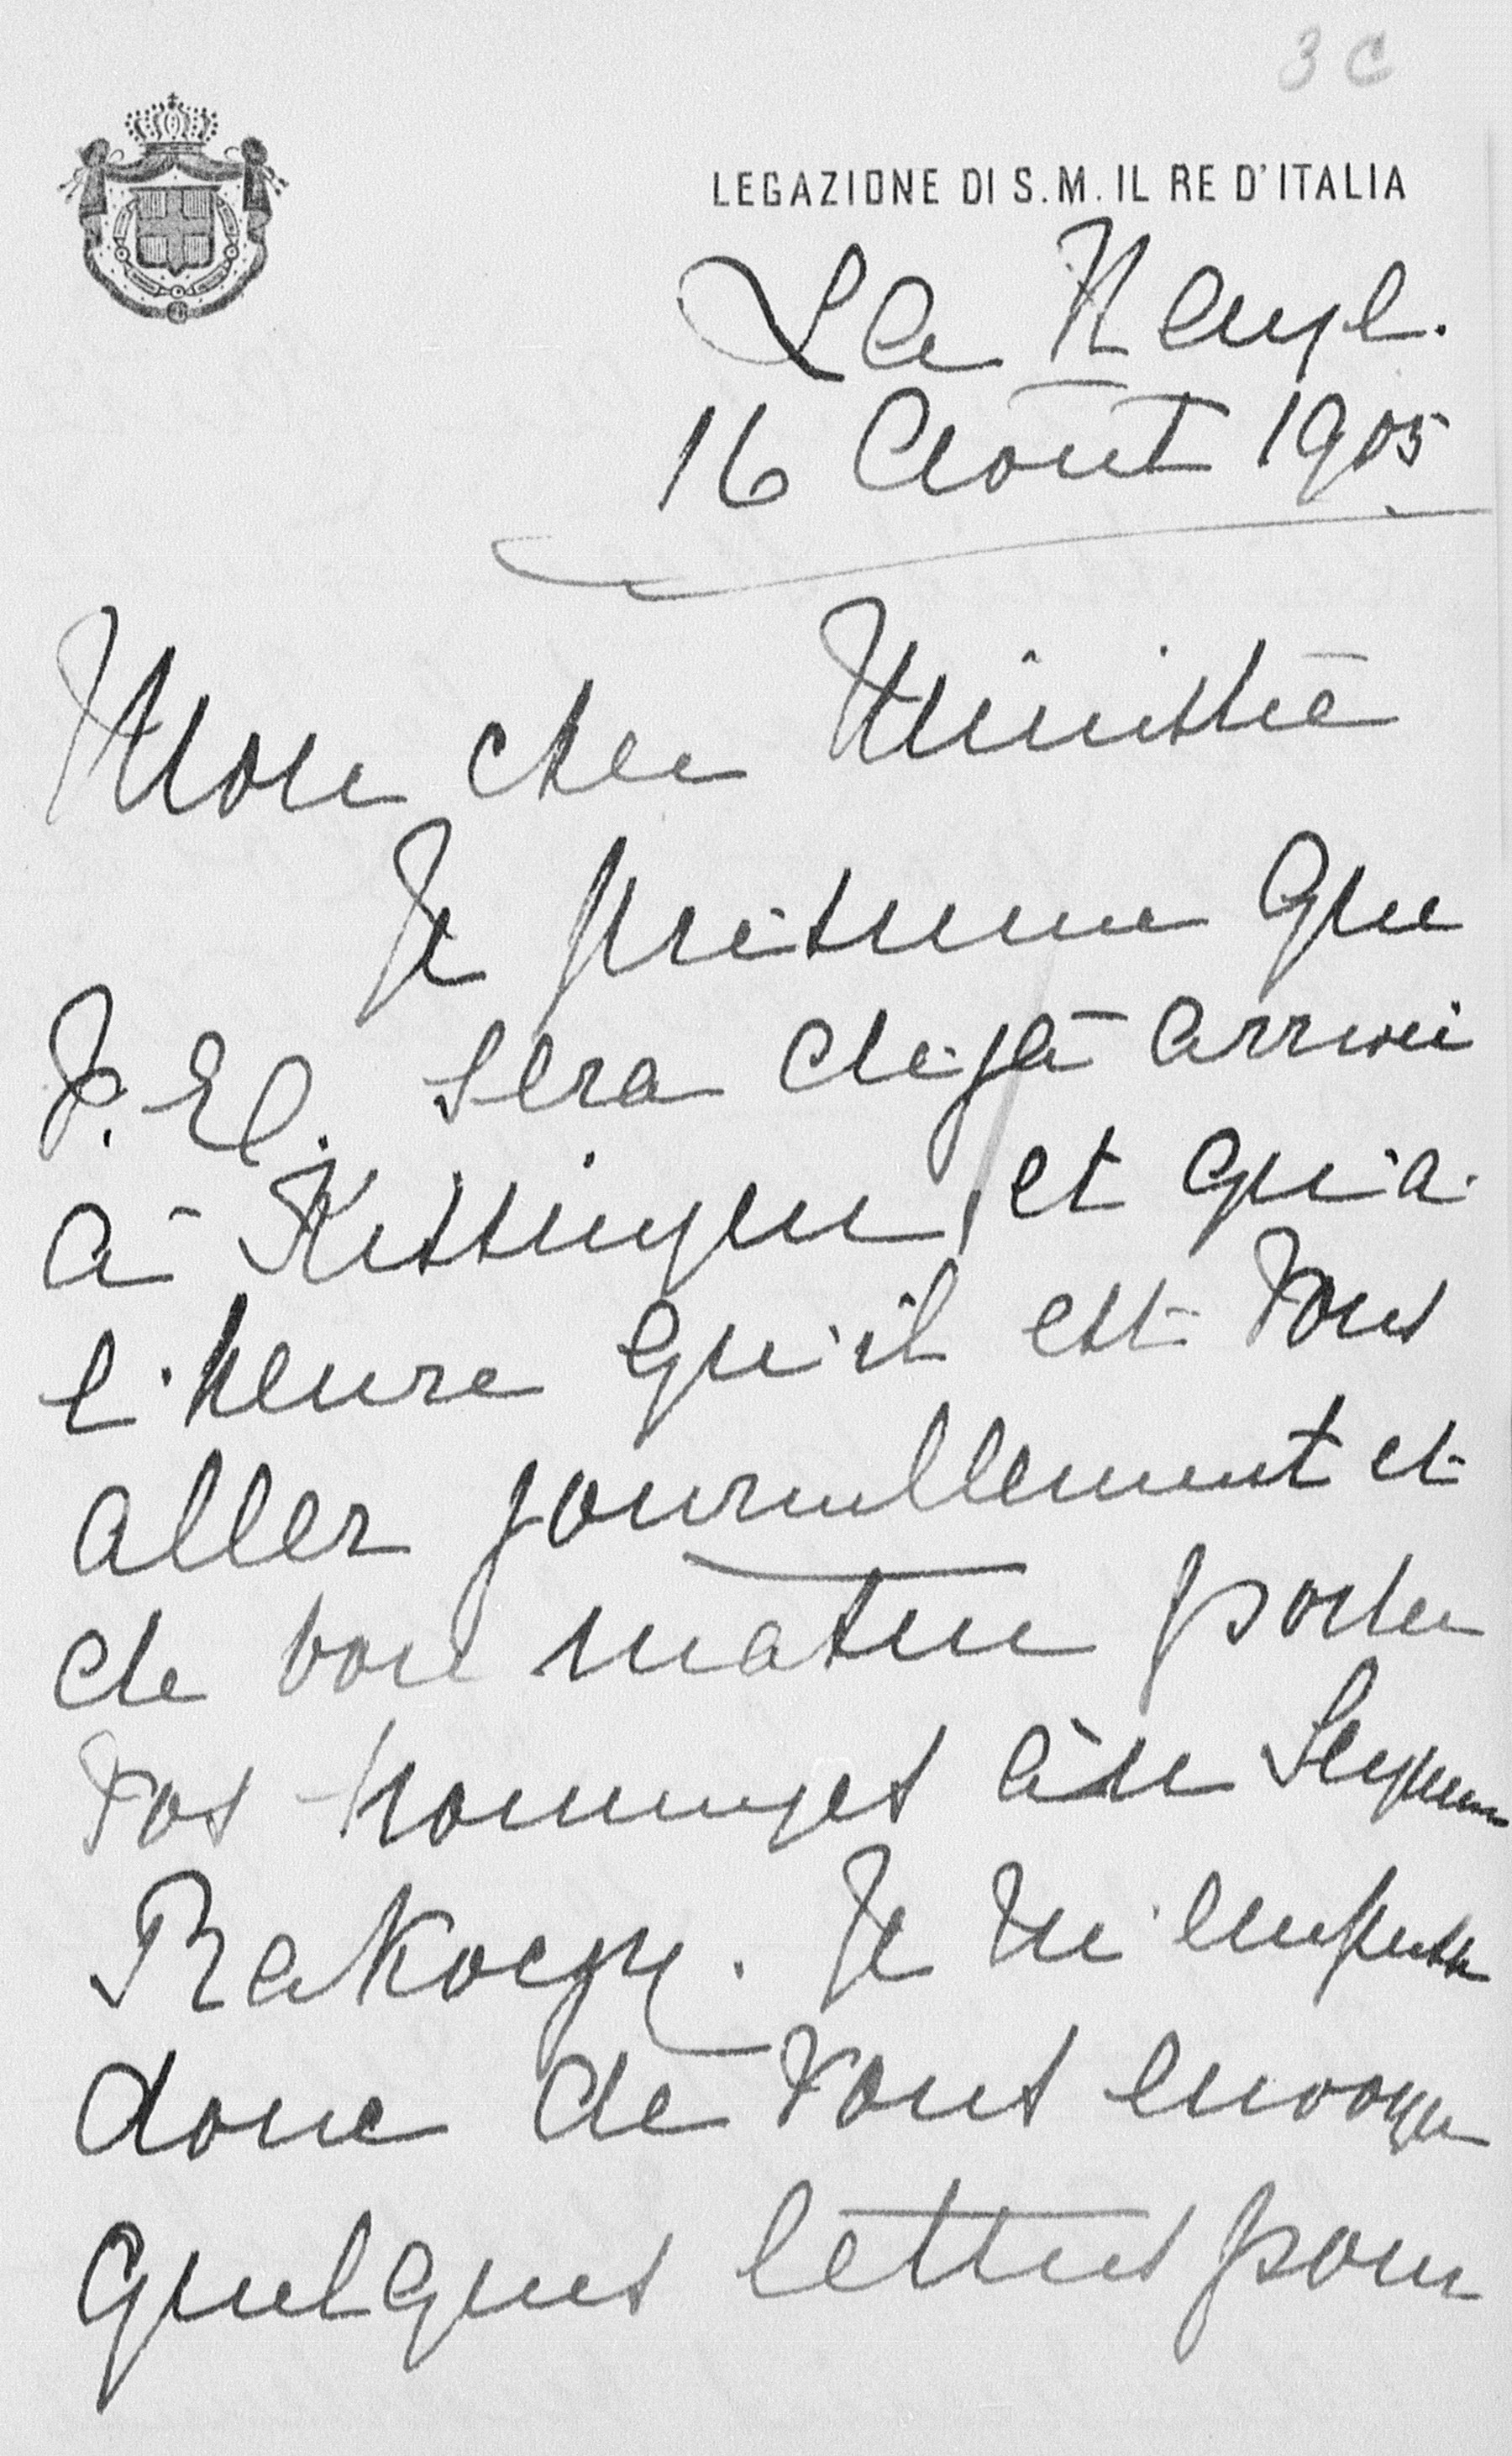 3 C
LEGAZIONE DI S. M. IL RE D'ITALIA
La Haye.
16 Août 1905
Mon cher Ministre
Je présume que
V. E. sera déjà arrivé
à Kissingen, et qu'à
l'heure qu'il est vous
allez journellement et
de bon matin porter
vos hommages à
Rakoczy. Je m'empresse
donc de vous envoyer
quelques lettres pour